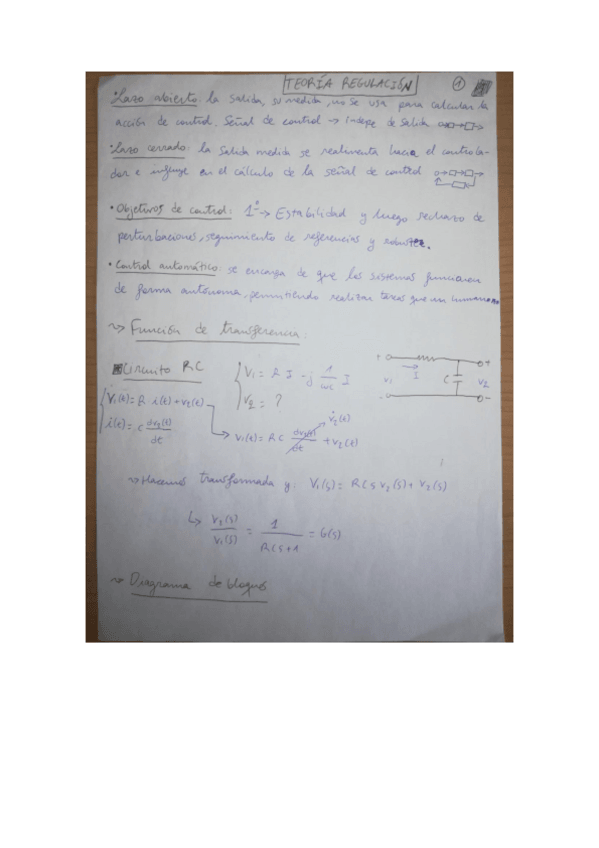 TEORÍA REGULACIÓN 1
• Lazo abierto: la salida, su medida, no se usa para calcular la
acción de control. Señal de control → Indepe de salida
• Lazo cerrado: la salida medida se realimenta hacia el controla-
dor e influye en el cálculo de la señal de control
• Objetivos de control: 1º → Estabilidad y luego rechazo de
perturbaciones, seguimiento de referencias y robustez.
• Control automático: se encarga de que los sistemas funcionen
de forma autónoma, permitiendo realizar tareas que un humano no
Función de transferencia:
Circuito RC
V1 = R I - j 1/ωC I
V2 = ?
+ V1 - I C + V2 -
V1(t) = R · i(t) + V2(t)
i(t) = C dV2(t)/dt
V1(t) = RC dV2(t)/dt + V2(t)
V̇2(t)
Hacemos transformada y: V1(s) = RCs V2(s) + V2(s)
V2(s)/V1(s) = 1/RCs+1 = G(s)
Diagrama de bloques